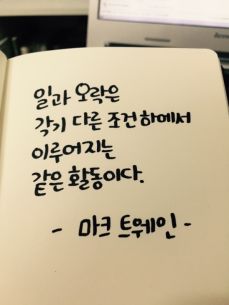 Lenovo
일과 오락은
각기 다른 조건하에서
이루어지는
같은 활동이다.
- 마크 트웨인 -